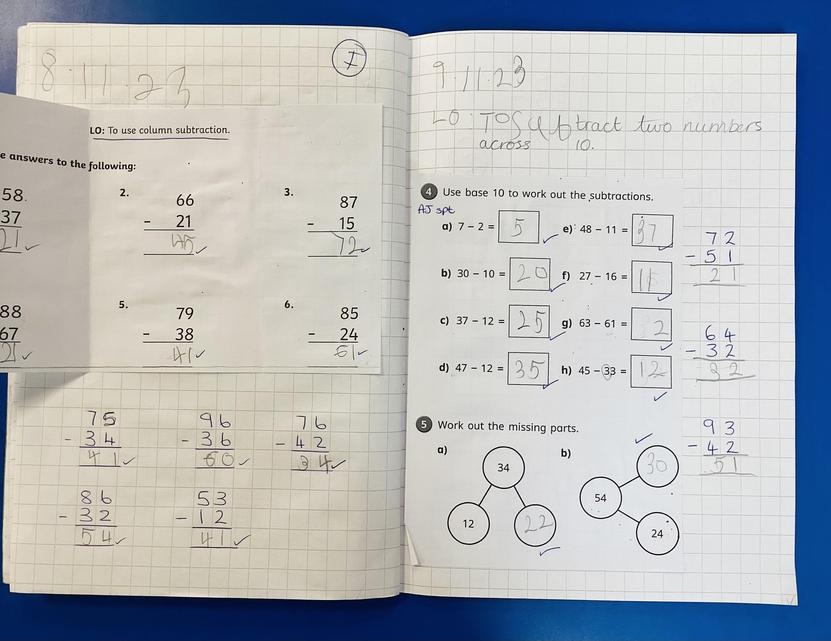 8.11.23
I
LO: To use column subtraction.
e answers to the following:
58
37
21
2. 66
- 21
45
3. 87
- 15
72
88
67
21
5. 79
- 38
41
6. 85
- 24
61
75
- 34
41
96
- 36
60
76
- 42
34
86
- 32
54
53
- 12
41
9.11.23
LO: To subtract two numbers
across 10.
4 Use base 10 to work out the subtractions.
AJ spt
a) 7 – 2 = 5
e) 48 – 11 = 37
b) 30 – 10 = 20
f) 27 – 16 = 11
c) 37 – 12 = 25
g) 63 – 61 = 2
d) 47 – 12 = 35
h) 45 – 33 = 12
72
- 51
21
64
- 32
32
93
- 42
51
5 Work out the missing parts.
a)
34
12
22
b)
54
30
24